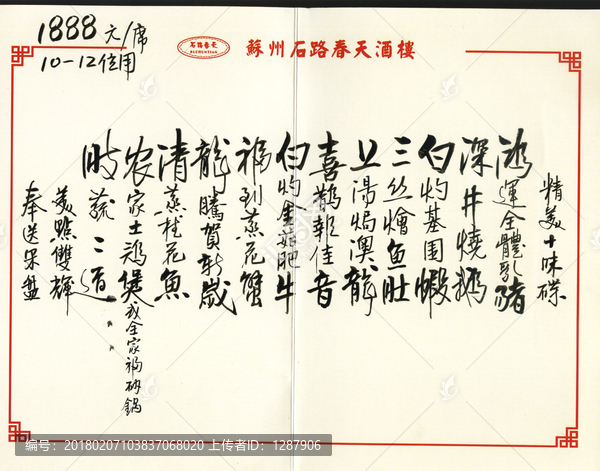 1888元/席
10-12位用
石路春天
SHILUCHUNTIAN
蘇州石路春天酒樓
精美十味碟
鴻運全體乳豬
深井燒鵝
白灼基围蝦
三丝燴魚肚
上湯焗澳龍
喜鹊報佳音
白灼金菇肥牛
福到蒸花蟹
龍騰賀新歲
清蒸桂花魚
农家土鸡煲或全家福砂鍋
時蔬二道
美點雙輝
奉送果盤
编号：20180207103837068020 上传者ID：1287906